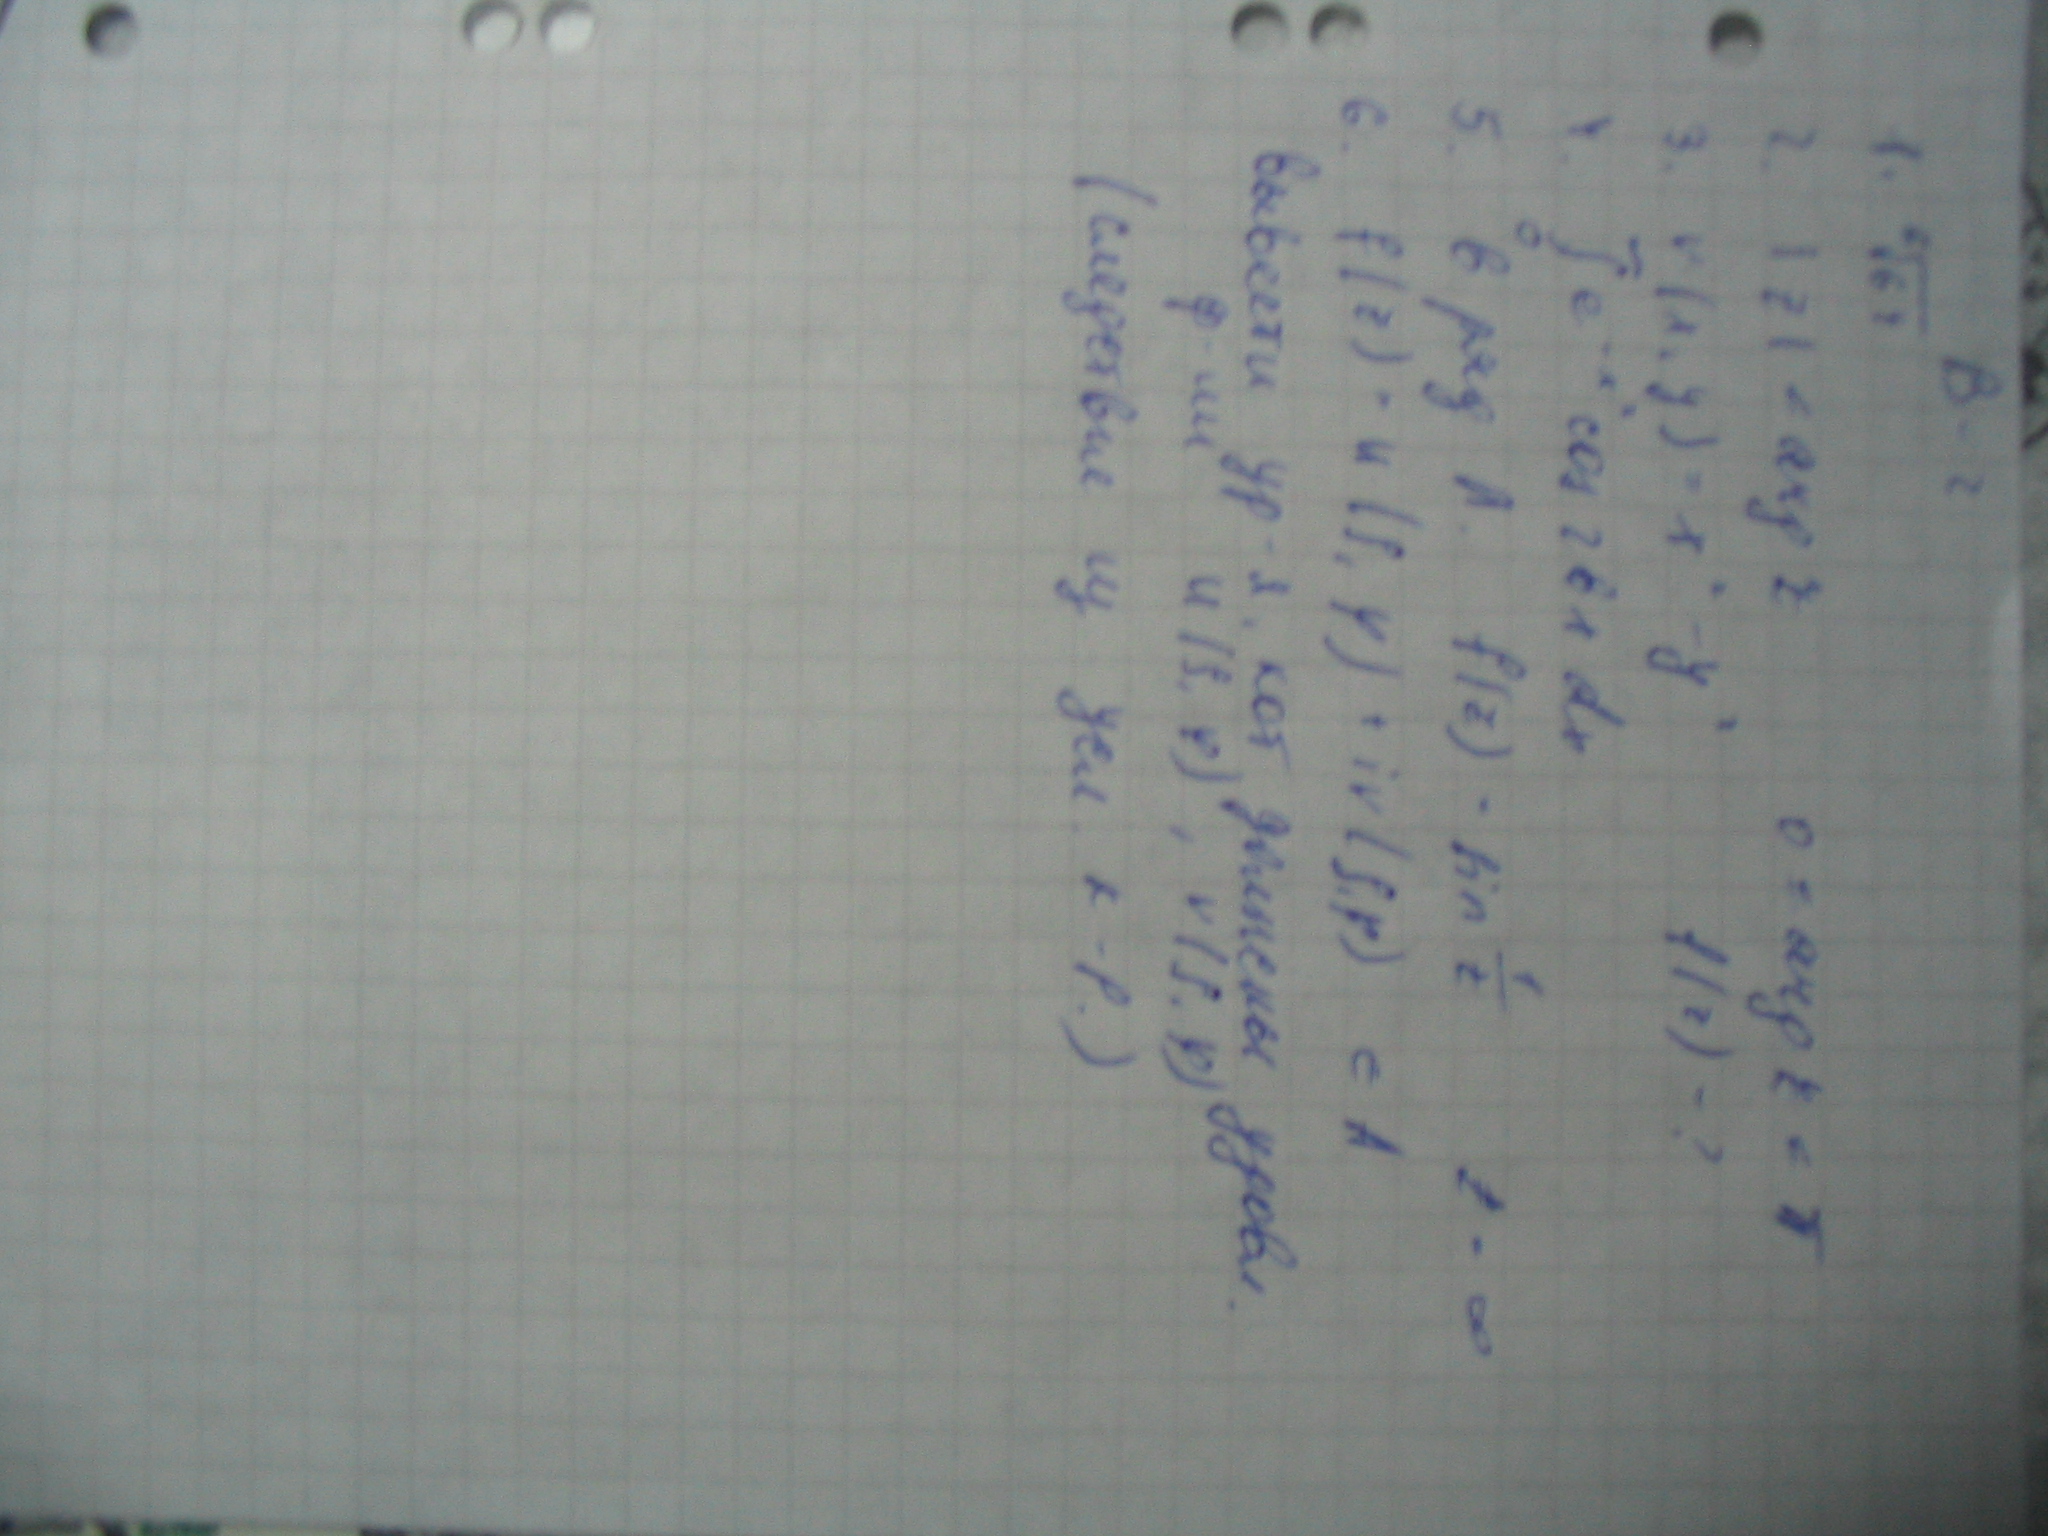 В-2
1.
2. |z| = arg z 0 ≤ arg z ≤ π
3. v(x, y) = x² - y² f(z) - ?
4. ∫₀^∞ e^{-x²} cos 2bx dx
5. В ряд Л. f(z) = sin 1/z z = ∞
6. f(z) = u(ρ, φ) + iv(ρ, φ) ⊂ A
вывести ур-я, кот должны удовл.
ф-ии u(ρ, φ), v(ρ, φ)
(следствие из усл. К-Р.)